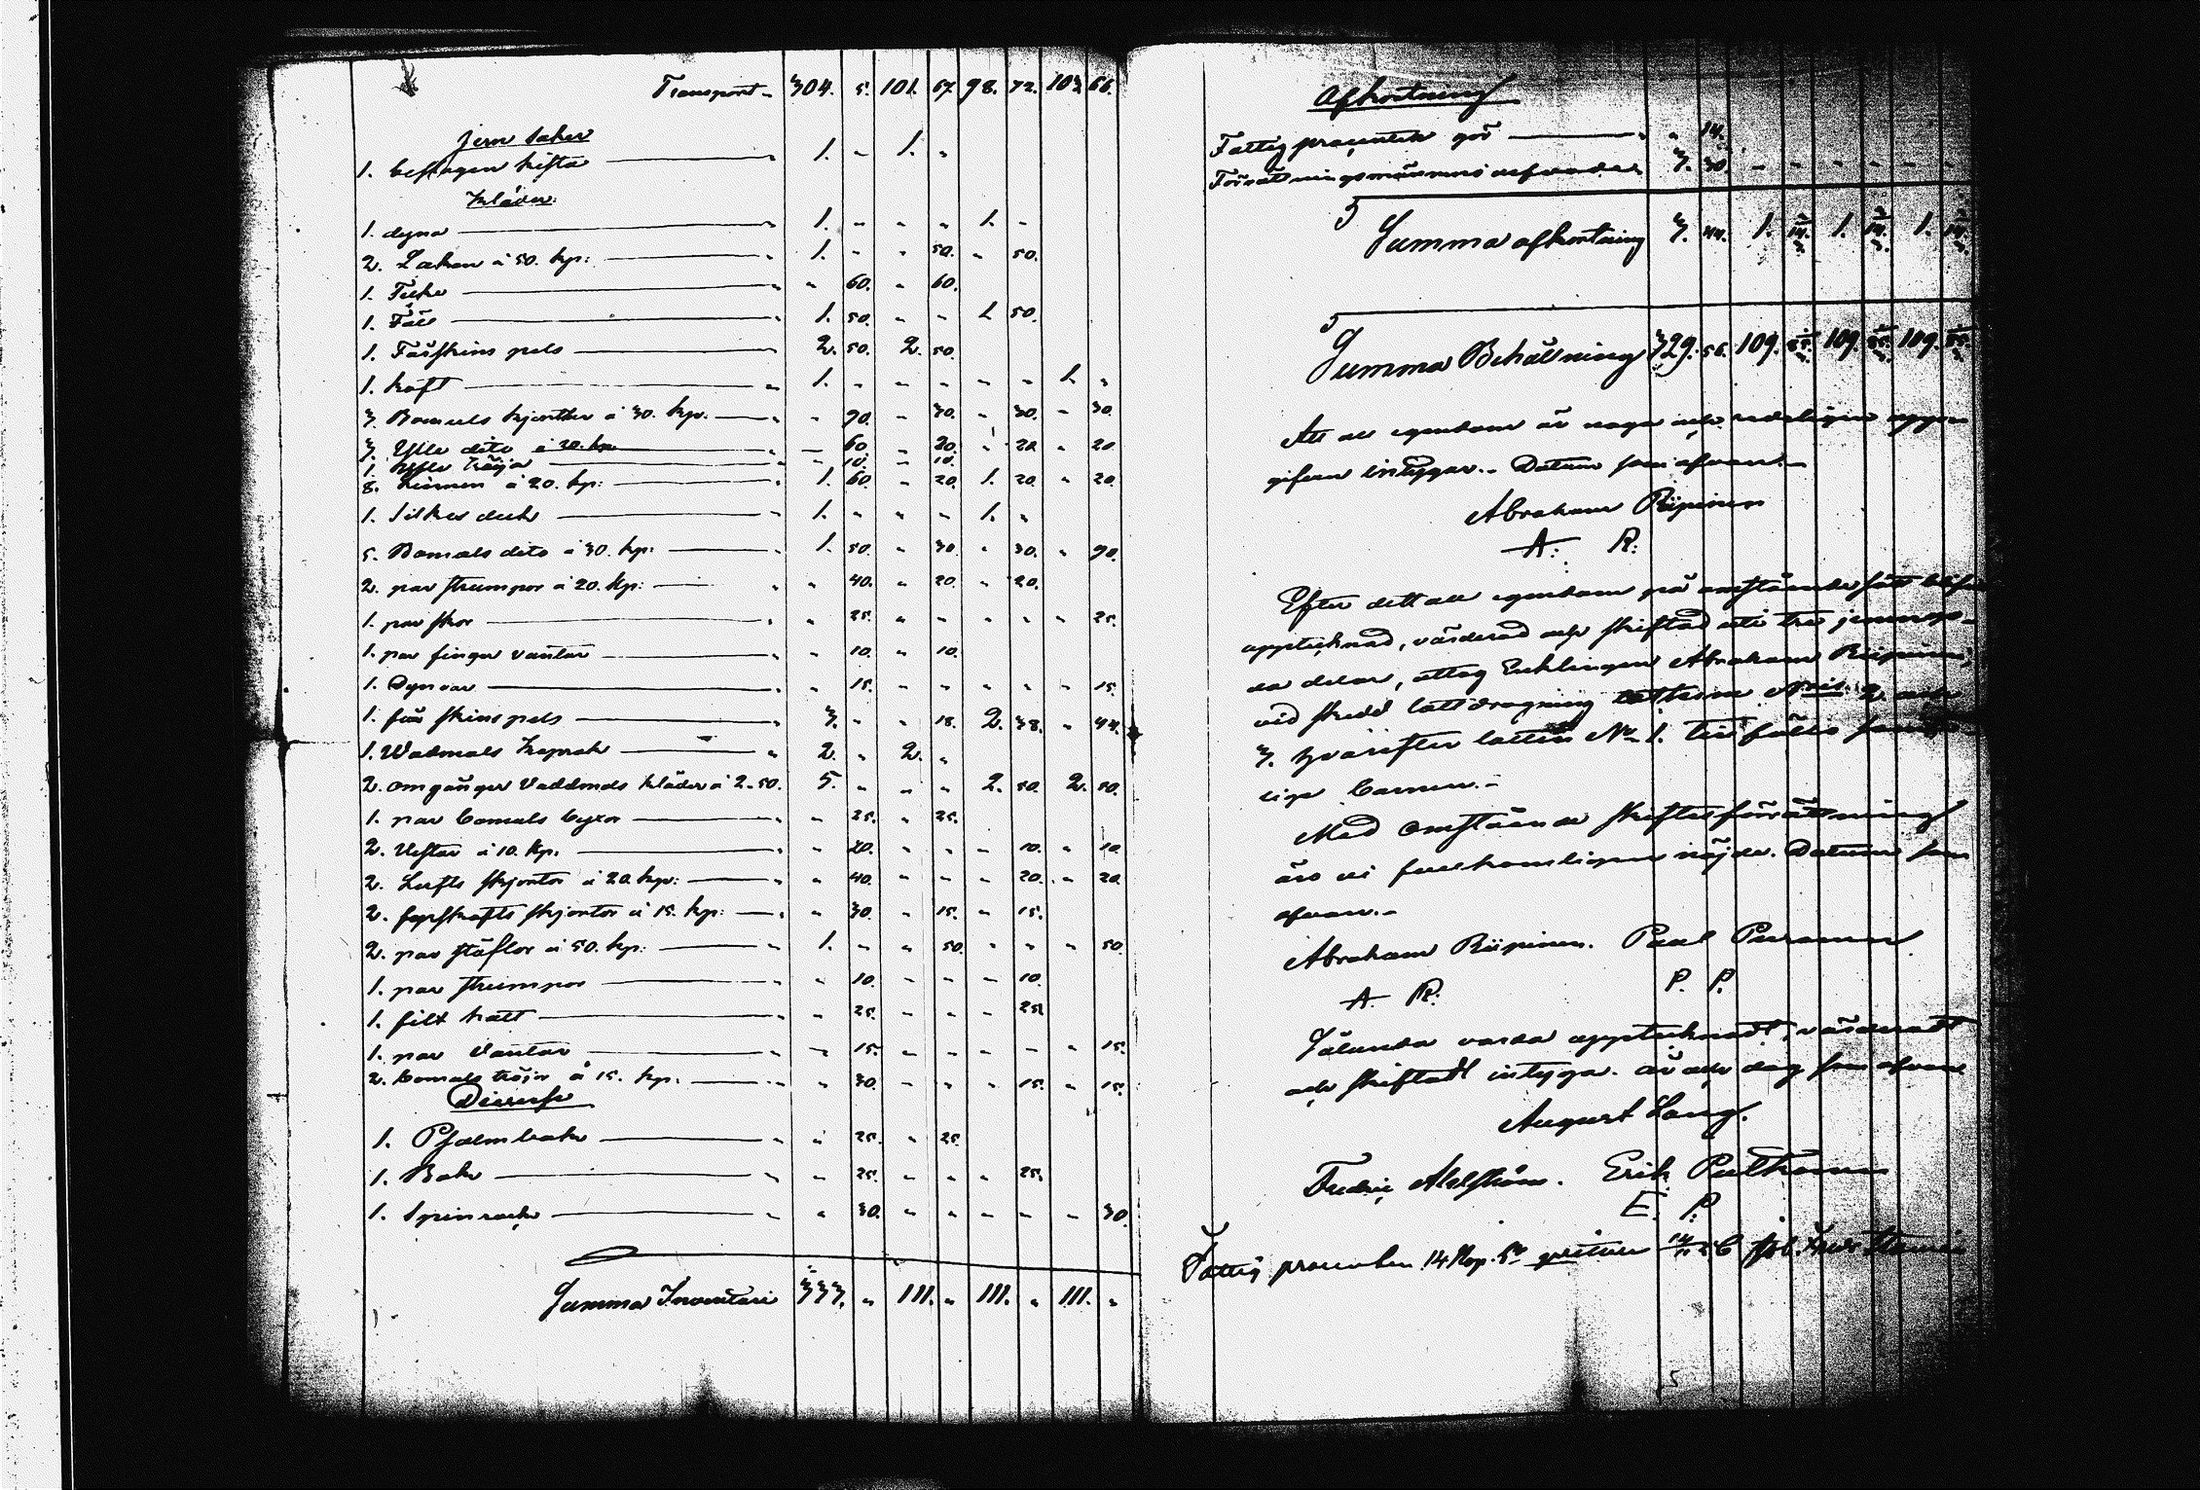 Transport 304. 5. 101. 67. 98. 72. 103. 66.
Jern saker
1. beslagen kista " 1. - 1. "
Kläder
1. dyna " 1. - - " 1. -
2. Lakan á 50. kp: " 1. - - 50. - 50.
1. Täcke " " 60. - 60.
1. Fäll " 1. 50. - - 1. 50.
1. Fårskins pels " 2. 50. 2. 50.
1. Koft " 1. - - - - - 1. "
3. Bomuls kjortlar á 30. kp. - - 90. - 30. - 30. - 30.
3. Ylle dito á 20. kp. - 60. - 20. " 20. " 20
1. Ylle tröja - 10. - 10.
8. Linnen á 20. kp: " 1. 60. - 20. 1. 20. " 20.
1. Silkes duk " 1. - - - 1. "
5. Bomuls dito á 30. kp: " 1. 50. - 30. " 30. " 90.
2. par strumpor á 20. kp: " " 40. - 20. - 20.
1. par skor " " 25. - - - - - 25.
1. par finger vantar " - 10. - 10.
1. Dynvar " - 15. - - - - - 15.
1. fårskins pels " 3. - - 18. 2. 38. - 44.
1. Wadmals Kaprok " 2. " 2. "
2. omgånger Vadmals kläder á 2-50. 5. " - - 2. 50. 2. 50.
1. par bomuls byxor " - 25. - 25.
2. Vestar á 10. kp. " - 20. - - - 10. " 10
2. Lerfts skjortor á 20. kp: " - 40. - - - 20. - 20
2. fyrskafts skjortor á 15. kp: " - 30. - 15. - 15.
2. par stöflor á 50. kp: " 1. - - 50. " - - 50
1. par strumpor " - 10. - - - 10.
1. filt hatt " - 25. - - - 25.
1. par vantar - 15. - - - - " 15.
2. bomuls tröjor á 15. kp. - 30. - - - 15. - 15.
Diverse
1. Psalmbok " " 25. " 25.
1. Bok " - 25. - - - 25.
1. Spinrock " " 30. - - - - - 30.
Summa Inventarii 333. " 111. " 111. " 111. "
Afkortning
Fattig procenten gör " " 14.
Förrättningsmännens arfvode 3. 30. - - - - - -
Summa afkortning 3. 44. 1. 14. 1. 14. 1. 14.
Summa Behållning 329. 56. 109. 85. 109. 85. 109. 85.
Att all egendom är noga och redeligen uppgifven intygar. Datum som ofvan.
Abraham Riipinen
A: R:
Efter dett all egendom på omstående sätt blifvit
upptecknad, värderad och skiftad uti tre jemngo-
da delar, uttog Enklingen Abraham Riipinen,
vid skedd lottdragning lotterne Nris 2. och
3. hvarefter lotten No 1. tillföll
barnen.
Med omstående skiftesförrättning
äro vi fullkomligen nöjde. Datum som
ofvan.
Abraham Riipinen. Paul Puranen
A. R. P. P.
Sålunda vara upptecknadt, värderadt
och skiftadt intyga. år och dag som ofvan
August Lang.
Fredric Ahlström. Erik Pulkkinen
E. P.
Fattig procenten 14 Kop. Sr